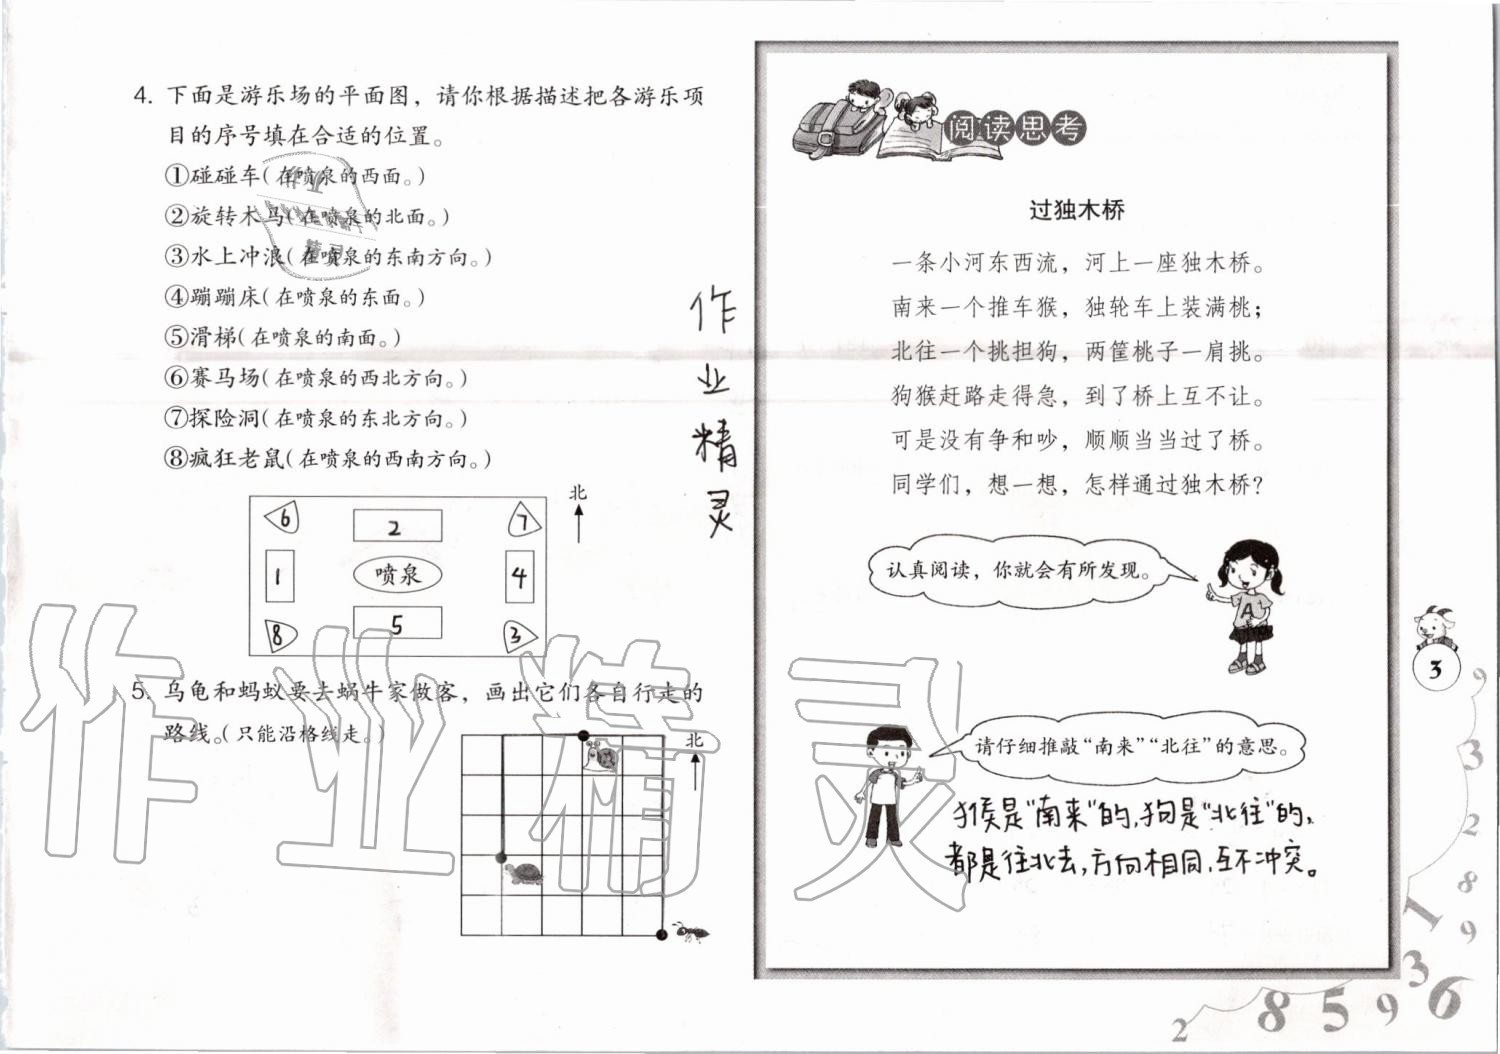 4. 下面是游乐场的平面图，请你根据描述把各游乐项
目的序号填在合适的位置。
①碰碰车(在喷泉的西面。)
②旋转木马(在喷泉的北面。)
③水上冲浪(在喷泉的东南方向。)
④蹦蹦床(在喷泉的东面。)
⑤滑梯(在喷泉的南面。)
⑥赛马场(在喷泉的西北方向。)
⑦探险洞(在喷泉的东北方向。)
⑧疯狂老鼠(在喷泉的西南方向。)
北
6 2 7
1 喷泉 4
8 5 3
5. 乌龟和蚂蚁要去蜗牛家做客，画出它们各自行走的
路线。(只能沿格线走。)
北
作业精灵
作业精灵
阅读思考
过独木桥
一条小河东西流，河上一座独木桥。
南来一个推车猴，独轮车上装满桃；
北往一个挑担狗，两筐桃子一肩挑。
狗猴赶路走得急，到了桥上互不让。
可是没有争和吵，顺顺当当过了桥。
同学们，想一想，怎样通过独木桥？
认真阅读，你就会有所发现。
A
请仔细推敲“南来”“北往”的意思。
猴是“南来”的，狗是“北往”的，
都是往北去，方向相同，互不冲突。
3
9
3
2
8
9
1
3
6
9
5
8
2